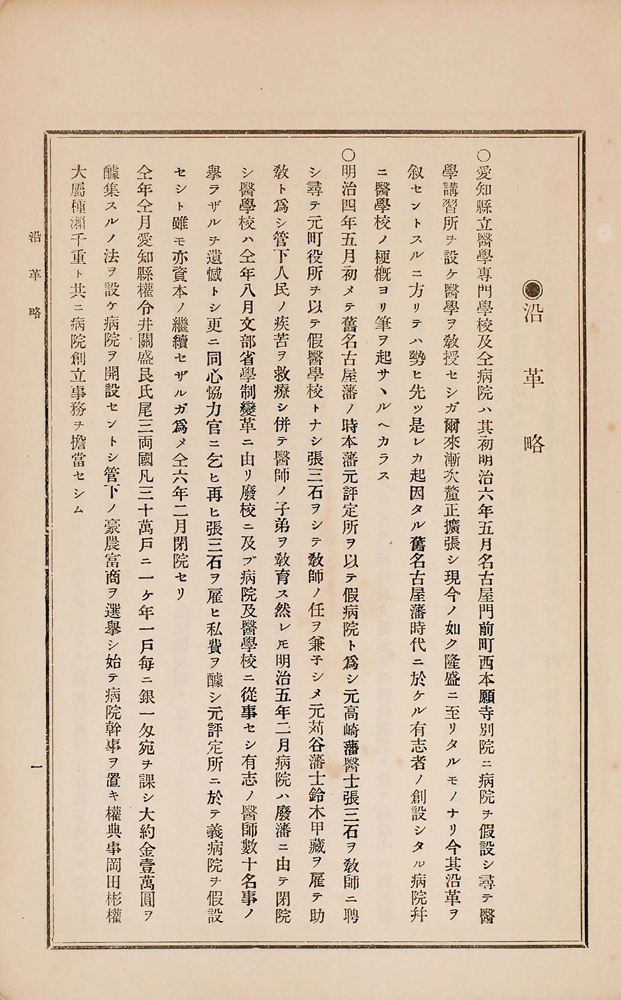 ●沿革略
○愛知縣立醫學專門學校及仝病院ハ其初明治六年五月名古屋門前町西本願寺別院ニ病院ヲ假設シ尋テ醫
學講習所ヲ設ケ醫學ヲ敎授セシガ爾來漸次釐正擴張シ現今ノ如ク隆盛ニ至リタルモノナリ今其沿革ヲ
叙セントスルニ方リテハ勢ヒ先ッ是レカ起因タル舊名古屋藩時代ニ於ケル有志者ノ創設シタル病院幷
ニ醫學校ノ梗槪ヨリ筆ヲ起サヽルヘカラス
○明治四年五月初メテ舊名古屋藩ノ時本藩元評定所ヲ以テ假病院ト爲シ元高崎藩醫士張三石ヲ敎師ニ聘
シ尋テ元町役所ヲ以テ假醫學校トナシ張三石ヲシテ敎師ノ任ヲ兼子シメ元苅谷藩士鈴木甲藏ヲ雇テ助
敎ト爲シ管下人民ノ疾苦ヲ救療シ併テ醫師ノ子弟ヲ敎育ス然レ𪜈明治五年二月病院ハ廢藩ニ由テ閉院
シ醫學校ハ仝年八月文部省學制變革ニ由リ廢校ニ及ブ病院及醫學校ニ從事セシ有志ノ醫師數十名事ノ
擧ラザルヲ遺憾トシ更ニ同心協力官ニ乞ヒ再ヒ張三石ヲ雇ヒ私費ヲ醵シ元評定所ニ於テ義病院ヲ假設
セシト雖モ亦資本ノ繼續セザルガ爲メ仝六年二月閉院セリ
仝年仝月愛知縣權令井關盛艮氏尾三両國凡三十萬戶ニ一ケ年一戶每ニ銀一匁宛ヲ課シ大約金壹萬圓ヲ
醵集スルノ法ヲ設ケ病院ヲ開設セントシ管下ノ豪農富商ヲ選擧シ始テ病院幹事ヲ置キ權典事岡田彬權
大屬種瀨千重ト共ニ病院創立事務ヲ擔當セシム
沿革略
一